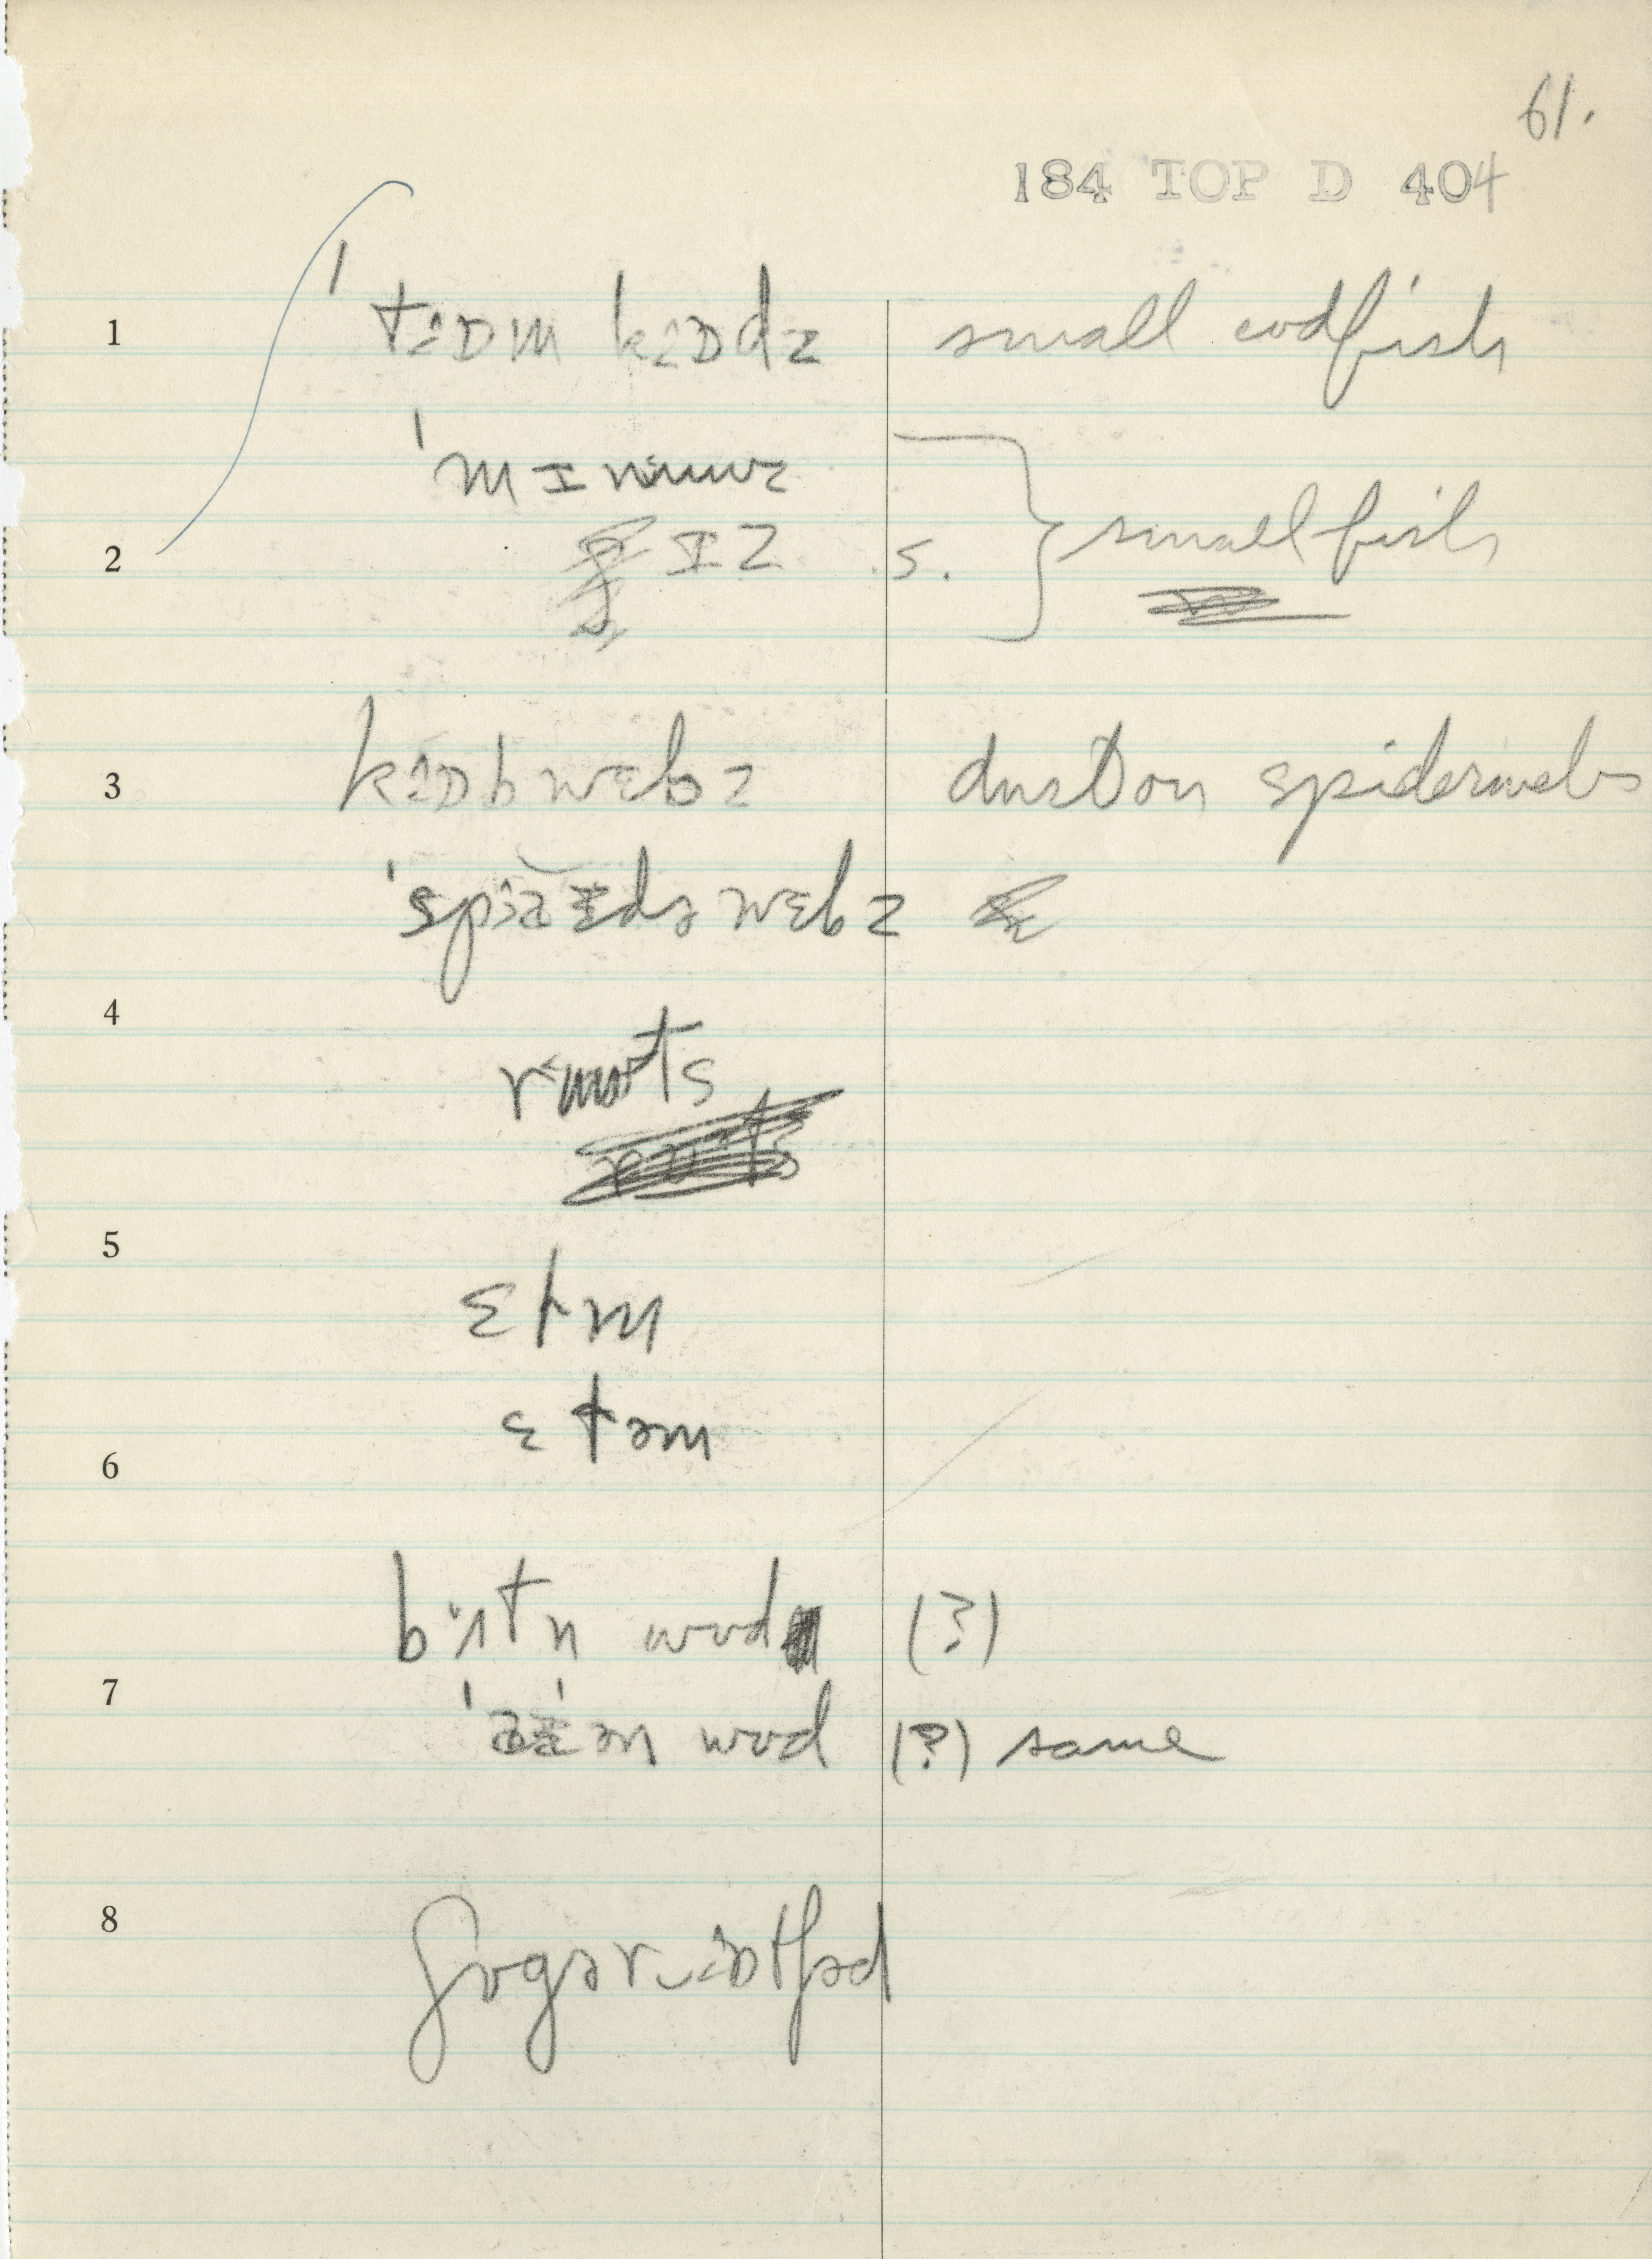 61.
184 TOP D 404
1 ˈtɪɒm kɪɒdz small codfish
ˈmɪnuuz
2 ɪz s. small fish
3 kɪɒbwɛbz dust on spiderwebs
ˈspɪaɪdəwɛbz
4
ruuts
5
ɛtm
ɛtəm
6
bɜtn wʊd (?)
7
ˈaɪən wʊd (?) same
8
ʃʊgər ɒtʃəd